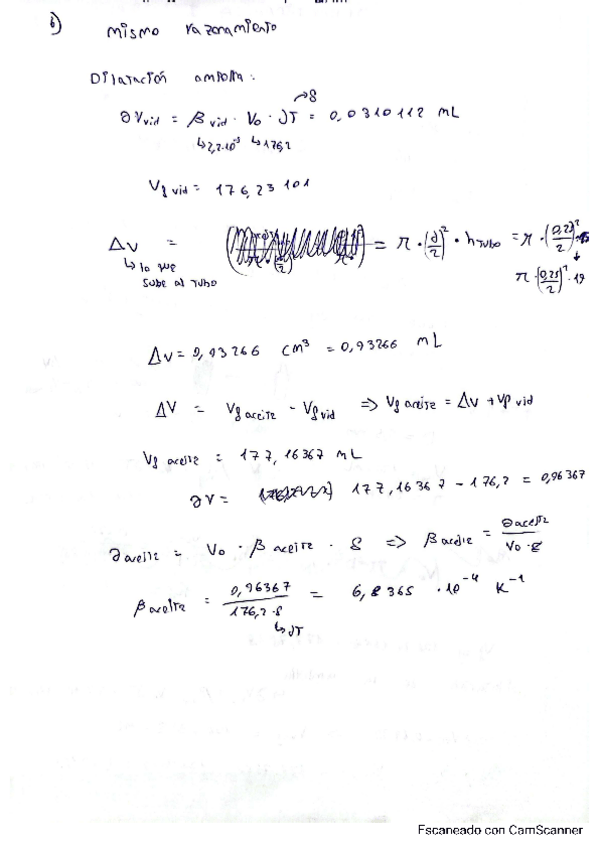 b) mismo razonamiento
Dilatación ampolla:
→8
∂V vid = β vid · V₀ · ∂T = 0,0310112 mL
↳2,2·10⁻⁵ ↳176,2
Vf vid = 176,23101
ΔV = = π · (d/2)² · h TUBO = π · (0,25/2)² ·
↳ lo que
sube al tubo
π · (0,25/2)² · 19
ΔV = 0,93266 cm³ = 0,93266 mL
ΔV = Vf aceite - Vf vid => Vf aceite = ΔV + Vf vid
Vf aceite = 177,16367 mL
∂V = 177,16367 - 176,2 = 0,96367
∂aceite = V₀ · β aceite · 8 => β aceite = ∂aceite / V₀ · 8
β aceite = 0,96367 / 176,2 · 8 = 6,8365 · 10⁻⁴ K⁻¹
↳ ∂T
Escaneado con CamScanner